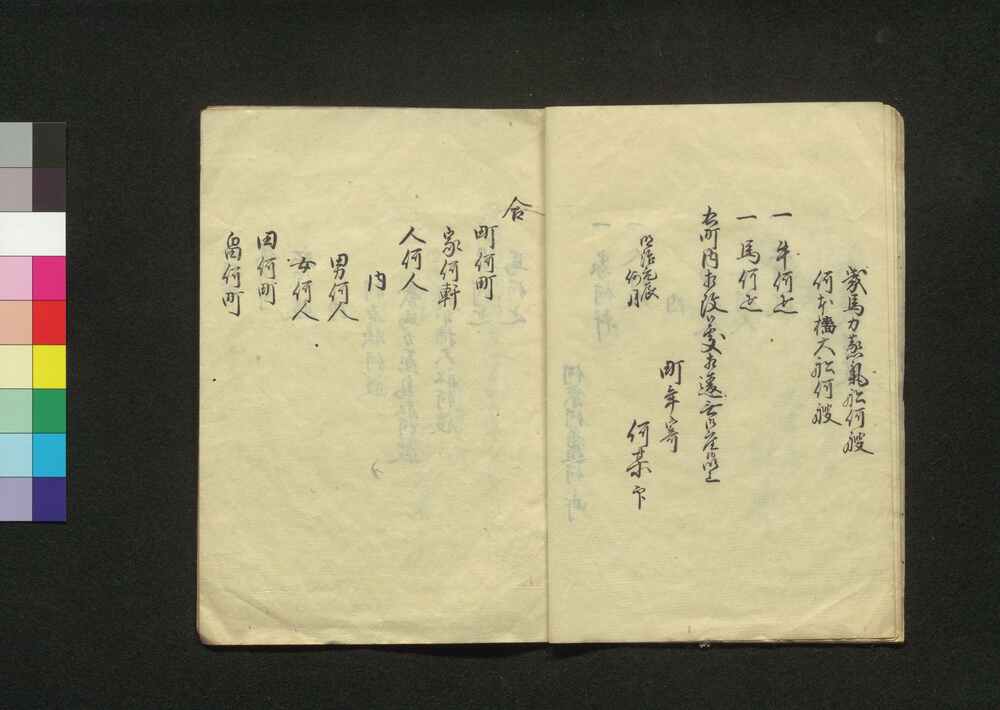 幾馬力蒸氣船何艘
何本檣大船何艘
一 牛何疋
一 馬何疋
右町内相改候處相違無御座候以上
明治元辰
何月
町年寄
何某印
合
町何町
家何軒
人何人
内
男何人
女何人
田何町
畠何町